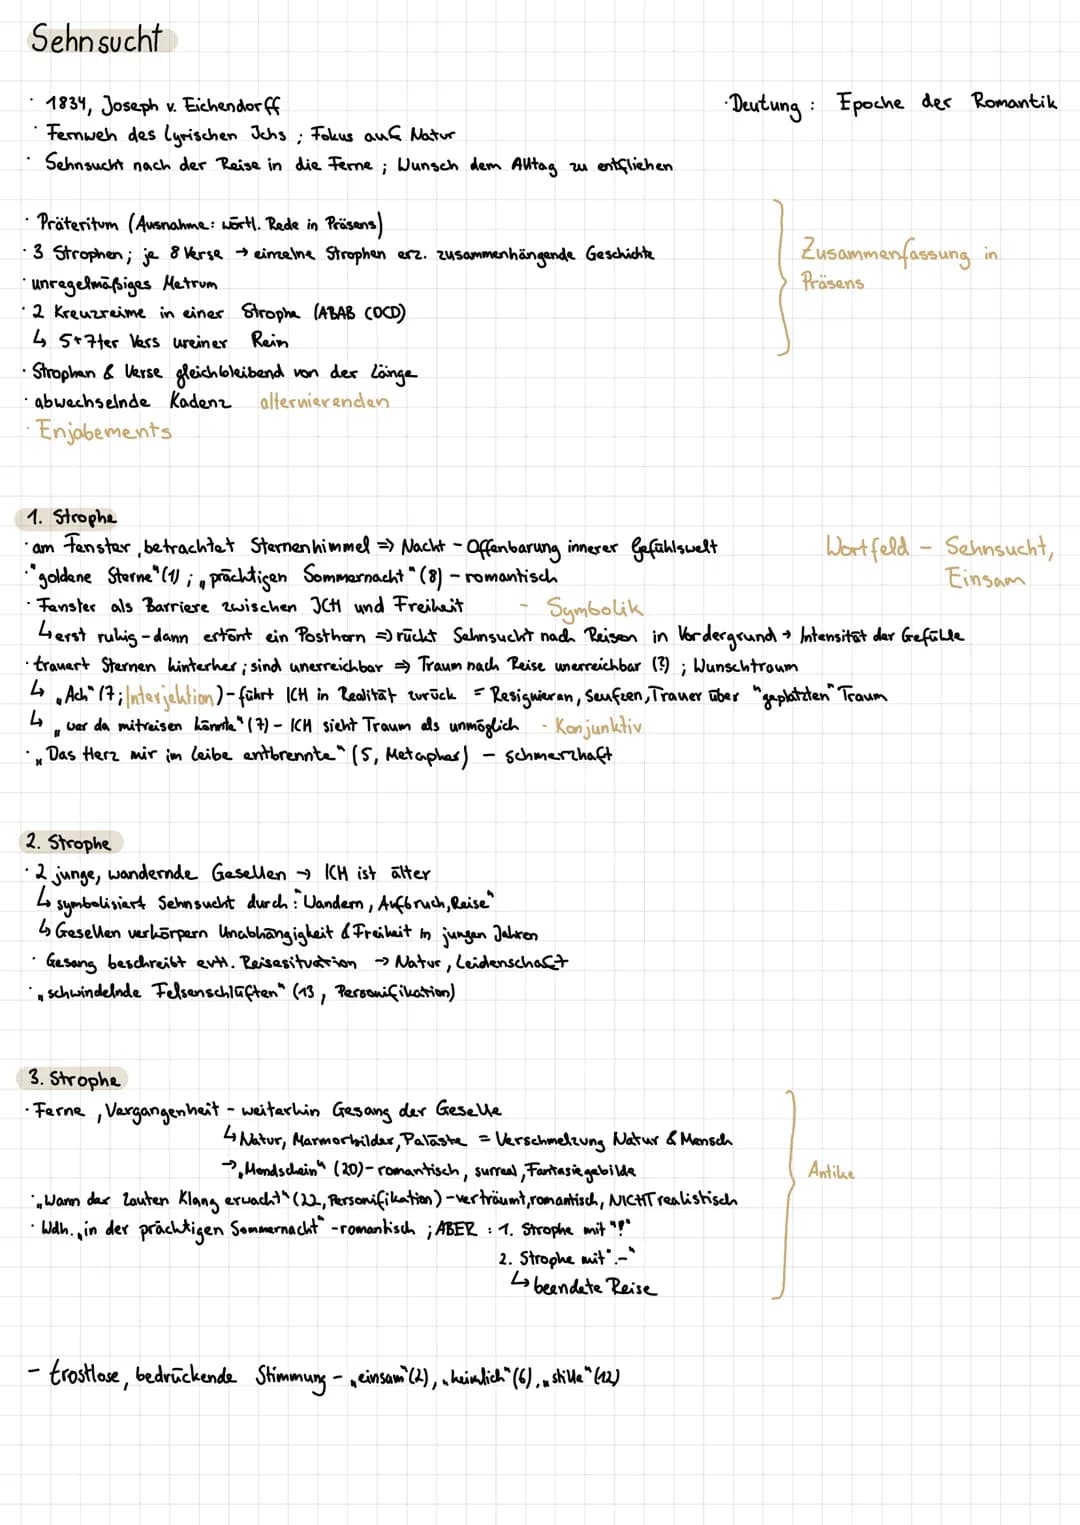 Sehnsucht
· 1834, Joseph v. Eichendorff
· Deutung : Epoche der Romantik
· Fernweh des Lyrischen Ichs ; Fokus auf Natur
· Sehnsucht nach der Reise in die Ferne ; Wunsch dem Alltag zu entfliehen
· Präteritum (Ausnahme: wörtl. Rede in Präsens)
· 3 Strophen; je 8 Verse → einzelne Strophen erz. zusammenhängende Geschichte
Zusammenfassung in
Präsens
· unregelmäßiges Metrum
· 2 Kreuzreime in einer Strophe (ABAB CDCD)
↳ 5+7ter Vers ureiner Reim
· Strophen & Verse gleichbleibend von der Länge
· abwechselnde Kadenz alternierenden
· Enjabements
1. Strophe
· am Fenster, betrachtet Sternenhimmel => Nacht - Offenbarung innerer Gefühlswelt
Wortfeld - Sehnsucht,
Einsam
· "goldene Sterne" (1) ; „prächtigen Sommernacht" (8) - romantisch
· Fenster als Barriere zwischen ICH und Freiheit - Symbolik
↳ erst ruhig - dann ertönt ein Posthorn => rückt Sehnsucht nach Reisen in Vordergrund → Intensität der Gefühle
· trauert Sternen hinterher ; sind unerreichbar => Traum nach Reise unerreichbar (?) ; Wunschtraum
↳ „Ach" (7; Interjektion) - führt ICH in Realität zurück = Resignieren, Seufzen, Trauer über "geplatzten" Traum
↳ „wer da mitreisen könnte" (7) - ICH sieht Traum als unmöglich - Konjunktiv
· „Das Herz mir im Leibe entbrennte" (5, Metapher) - schmerzhaft
2. Strophe
· 2 junge, wandernde Gesellen → ICH ist älter
↳ symbolisiert Sehnsucht durch : "Wandern, Aufbruch, Reise"
↳ Gesellen verkörpern Unabhängigkeit & Freiheit in jungen Jahren
· Gesang beschreibt evtl. Reisesituation → Natur, Leidenschaft
· „schwindelnde Felsenschlüften" (13, Personifikation)
3. Strophe
· Ferne, Vergangenheit - weiterhin Gesang der Geselle
↳ Natur, Marmorbilder, Paläste = Verschmelzung Natur & Mensch
→ „Mondschein" (20) - romantisch, surreal, Fantasiegebilde
Antike
· „Wann der Lauten Klang erwacht" (22, Personifikation) - verträumt, romantisch, NICHT realistisch
· Wdh. „in der prächtigen Sommernacht" - romantisch ; ABER : 1. Strophe mit "!"
2. Strophe mit ".-"
↳ beendete Reise
- trostlose, bedrückende Stimmung - „einsam" (2), „heimlich" (6), „stille" (12)